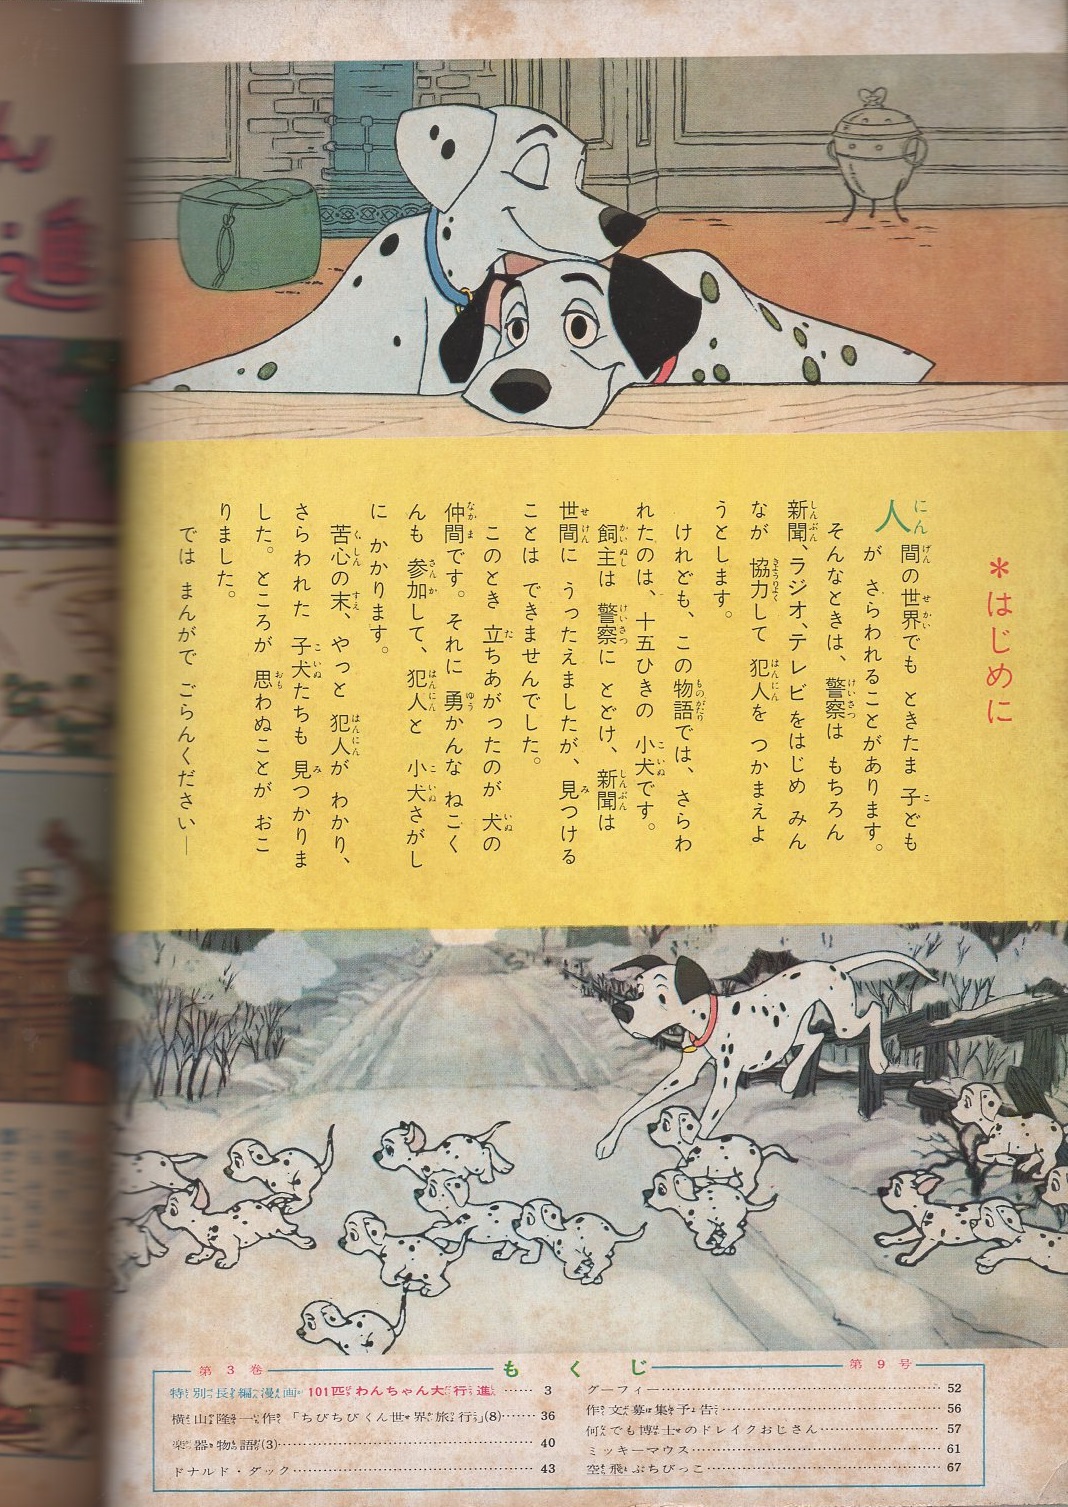 *はじめに
人間の世界でも ときたま 子ども
が さらわれることがあります。
そんなときは、警察は もちろん
新聞、ラジオ、テレビ をはじめ みん
なが 協力して 犯人を つかまえよ
うとします。
けれども、この物語では、さらわ
れたのは、十五ひきの 小犬です。
飼主は 警察に とどけ、新聞は
世間に うったえましたが、見つける
ことは できませんでした。
このとき 立ちあがったのが 犬の
仲間です。それに 勇かんな ねこく
んも 参加して、犯人と 小犬さがし
に かかります。
苦心の末、やっと 犯人が わかり、
さらわれた 子犬たちも 見つかりま
した。ところが 思わぬことが おこ
りました。
では まんがで ごらんください—
第3巻 もくじ 第9号
特別長編漫画 101匹わんちゃん大行進……3
横山隆一作「ちびちびくん世界旅行」(8)……36
楽器物語(3)……40
ドナルド・ダック……43
グーフィー……52
作文募集予告……56
何でも博士のドレイクおじさん……57
ミッキーマウス……61
空飛ぶちびっこ……67